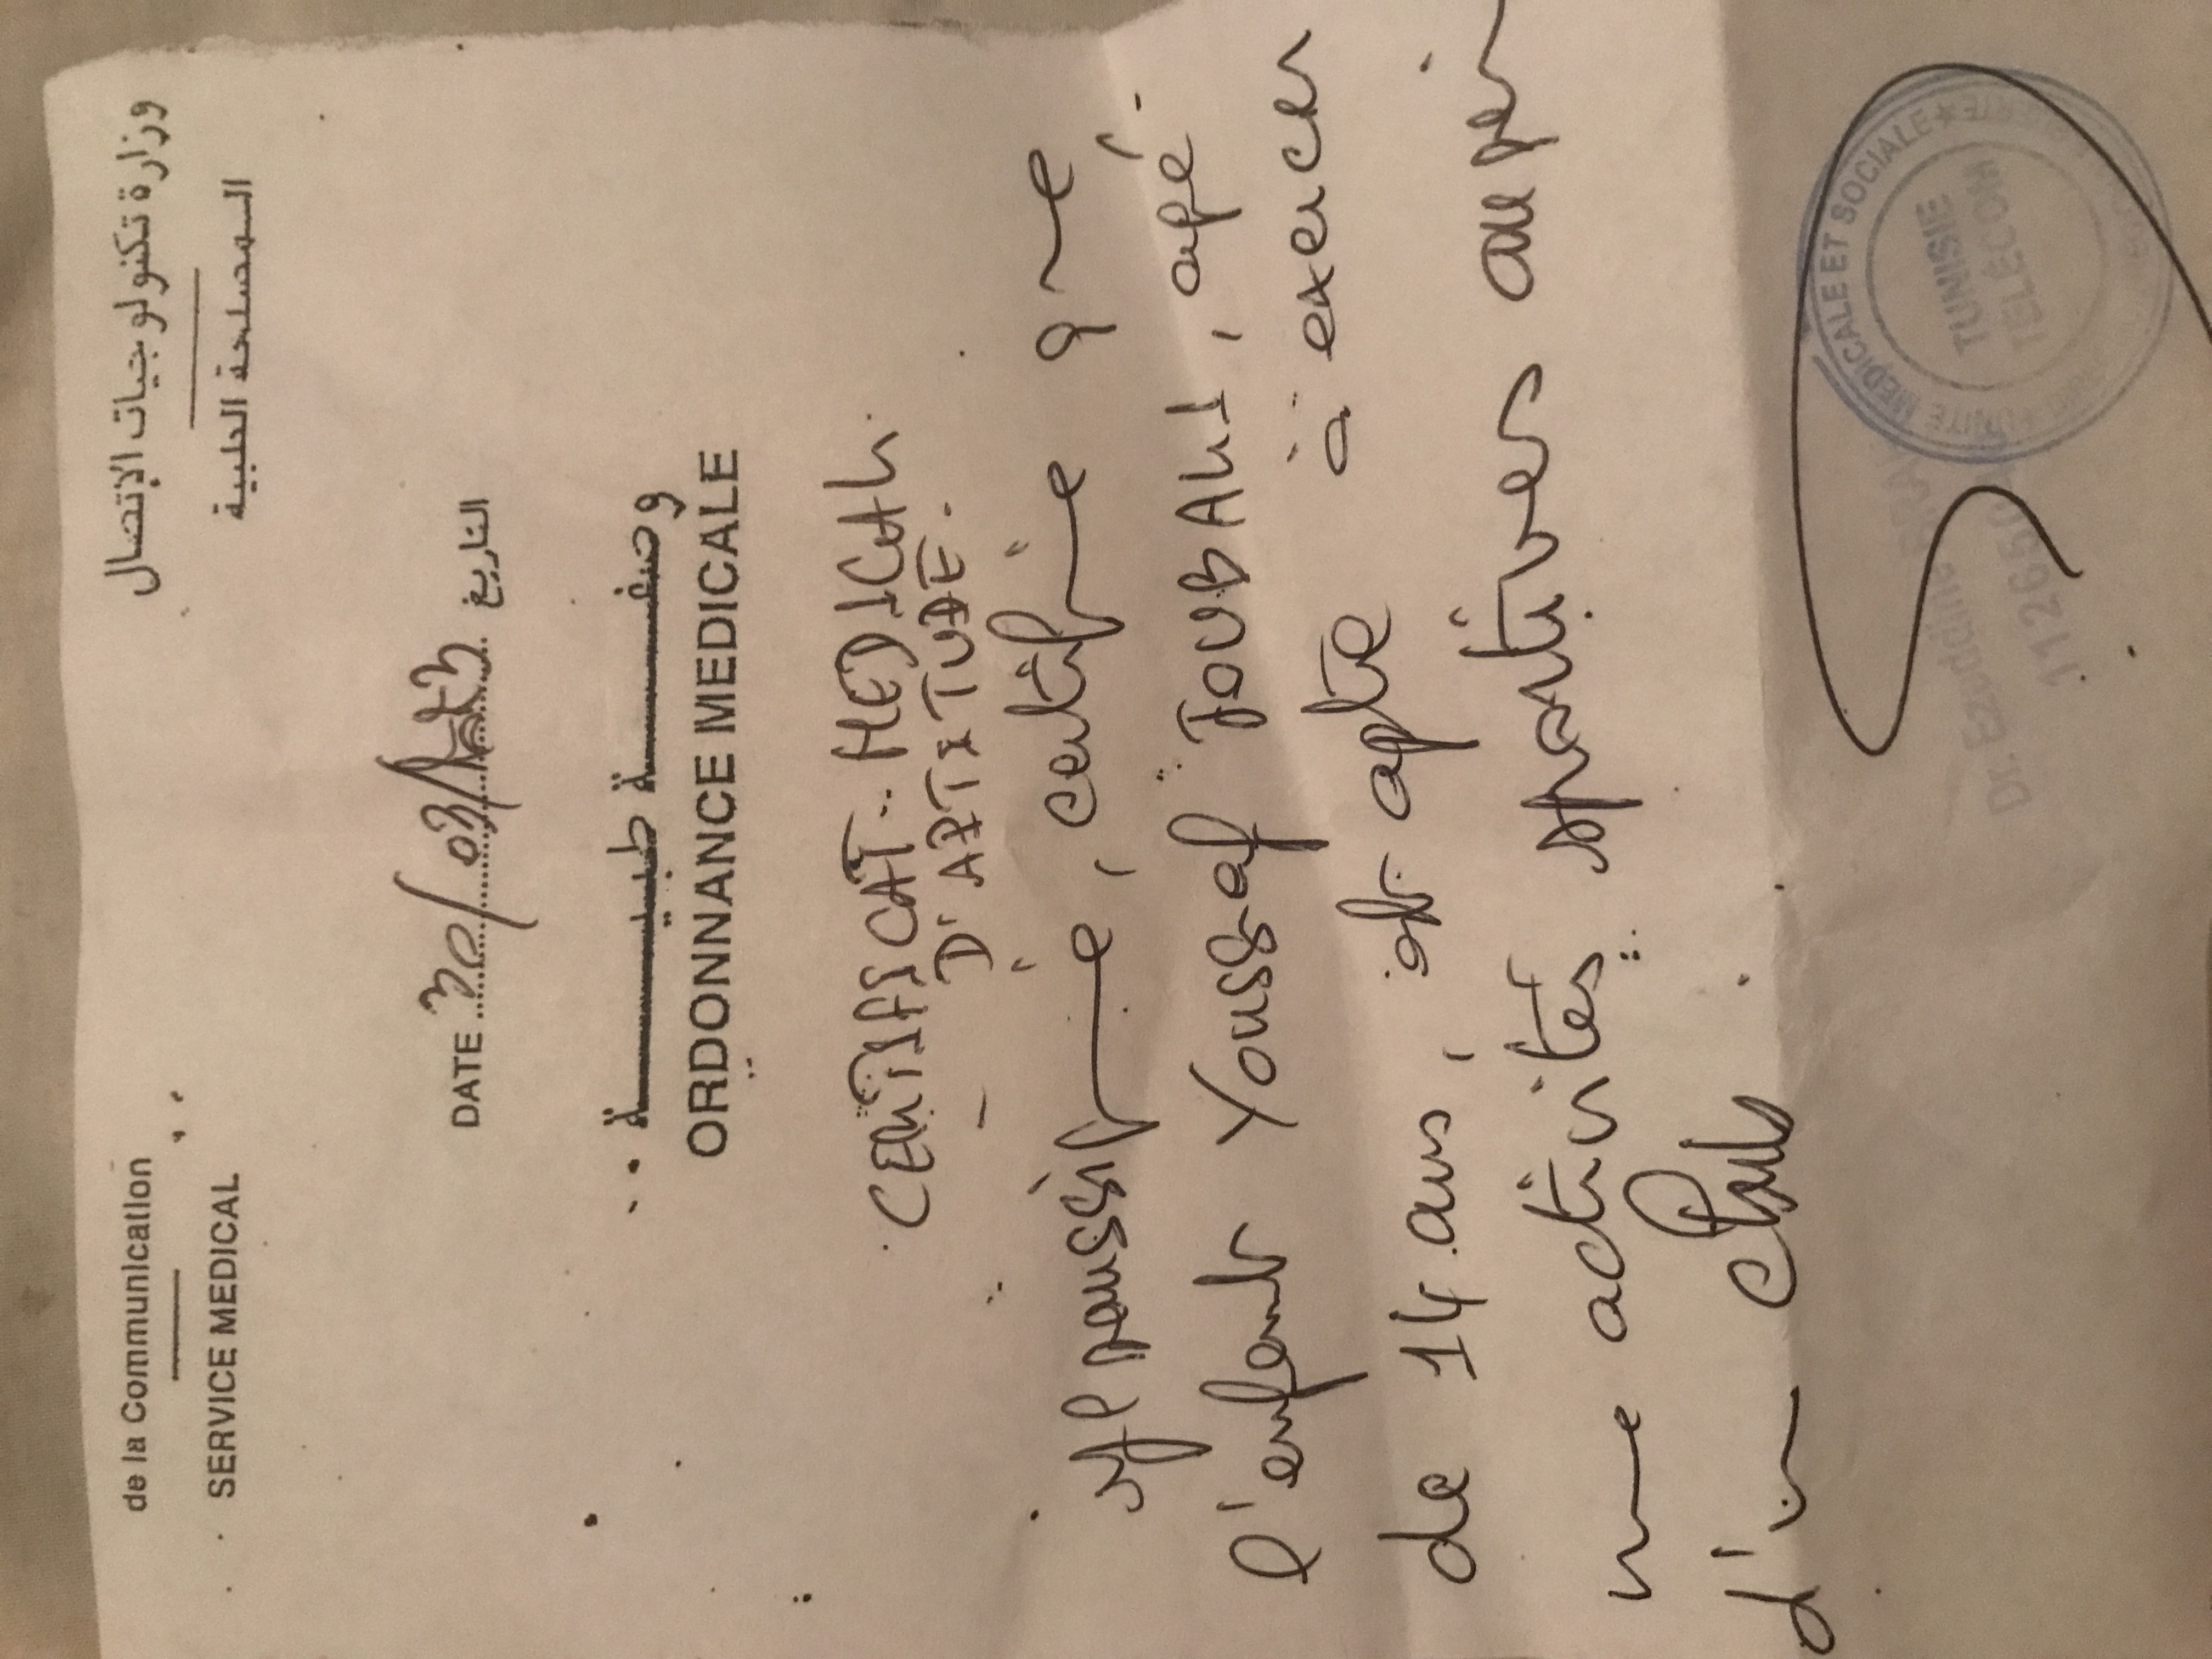 de la Communication
SERVICE MEDICAL
وزارة تكنولوجيات الإتصال
المصلحة الطبية
DATE 20/03/ التاريخ
وصفة طبية
ORDONNANCE MEDICALE
CERTIFICAT MEDICAL
D'APTITUDE.
, certifie que
l'enfant Youssef JOUBALI, agé
de 14 ans, est apte à exercer
une activités sportives au sein
d'un club
UNITE MEDICALE ET SOCIALE ★
TUNISIE
TELECOM
Dr. Ezeddine